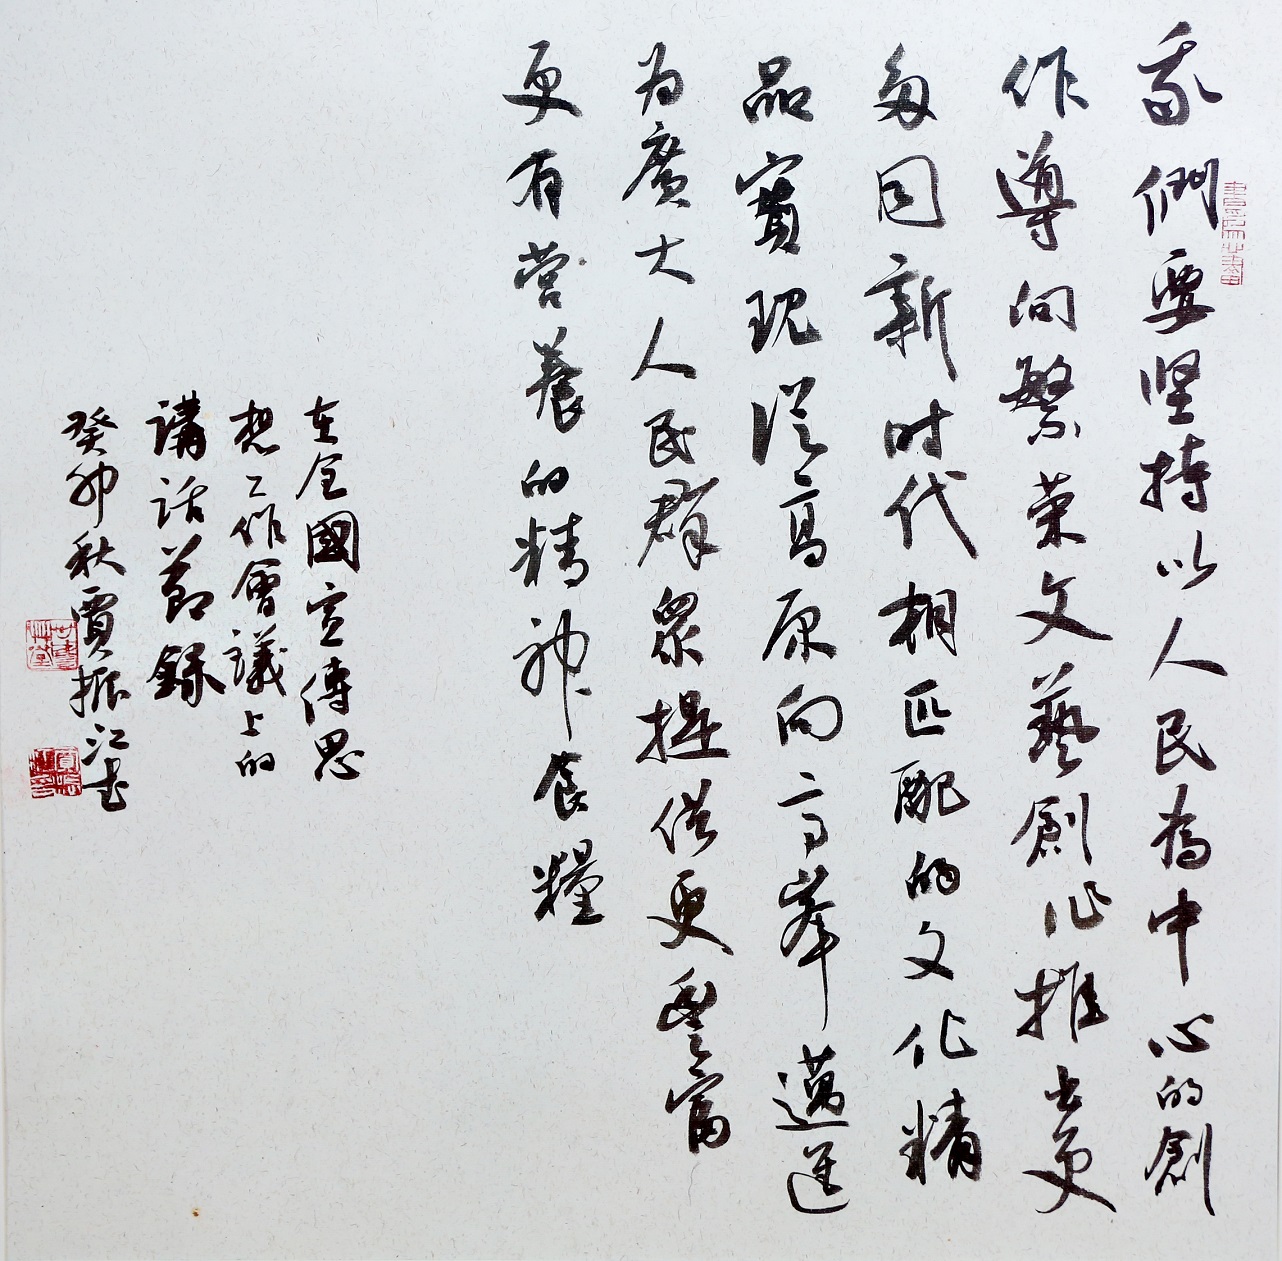 我們要坚持以人民為中心的創
作導向繁荣文藝創作推出更
多同新时代相匹配的文化精
品實現從高原向高峯邁進
为廣大人民群眾提供更豐富
更有营養的精神食糧
在全國宣傳思
想工作會議上的
講話節録
癸卯秋賈振江书